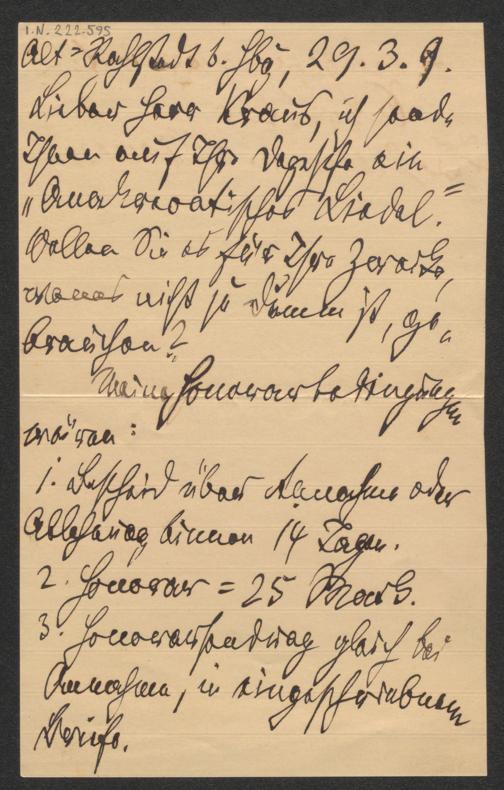 I.N. 222.595
Alt=Rahlstedt b. Hbg, 29. 3. 9.
Lieber Herr Kraus, ich sende
Ihnen auf Ihre Depesche ein
„Anakreontisches Liedel."
Wollen Sie es für Ihre Zwecke,
wenns nicht zu dumm ist, ge„
brauchen?
Meine Honorarbedingungen
wären:
1. Bescheid über Annahme oder
Ablehnung binnen 14 Tagen.
2. Honorar = 25 Mark.
3. Honorarsendung gleich bei
Annahme, in eingeschriebnem
Briefe.